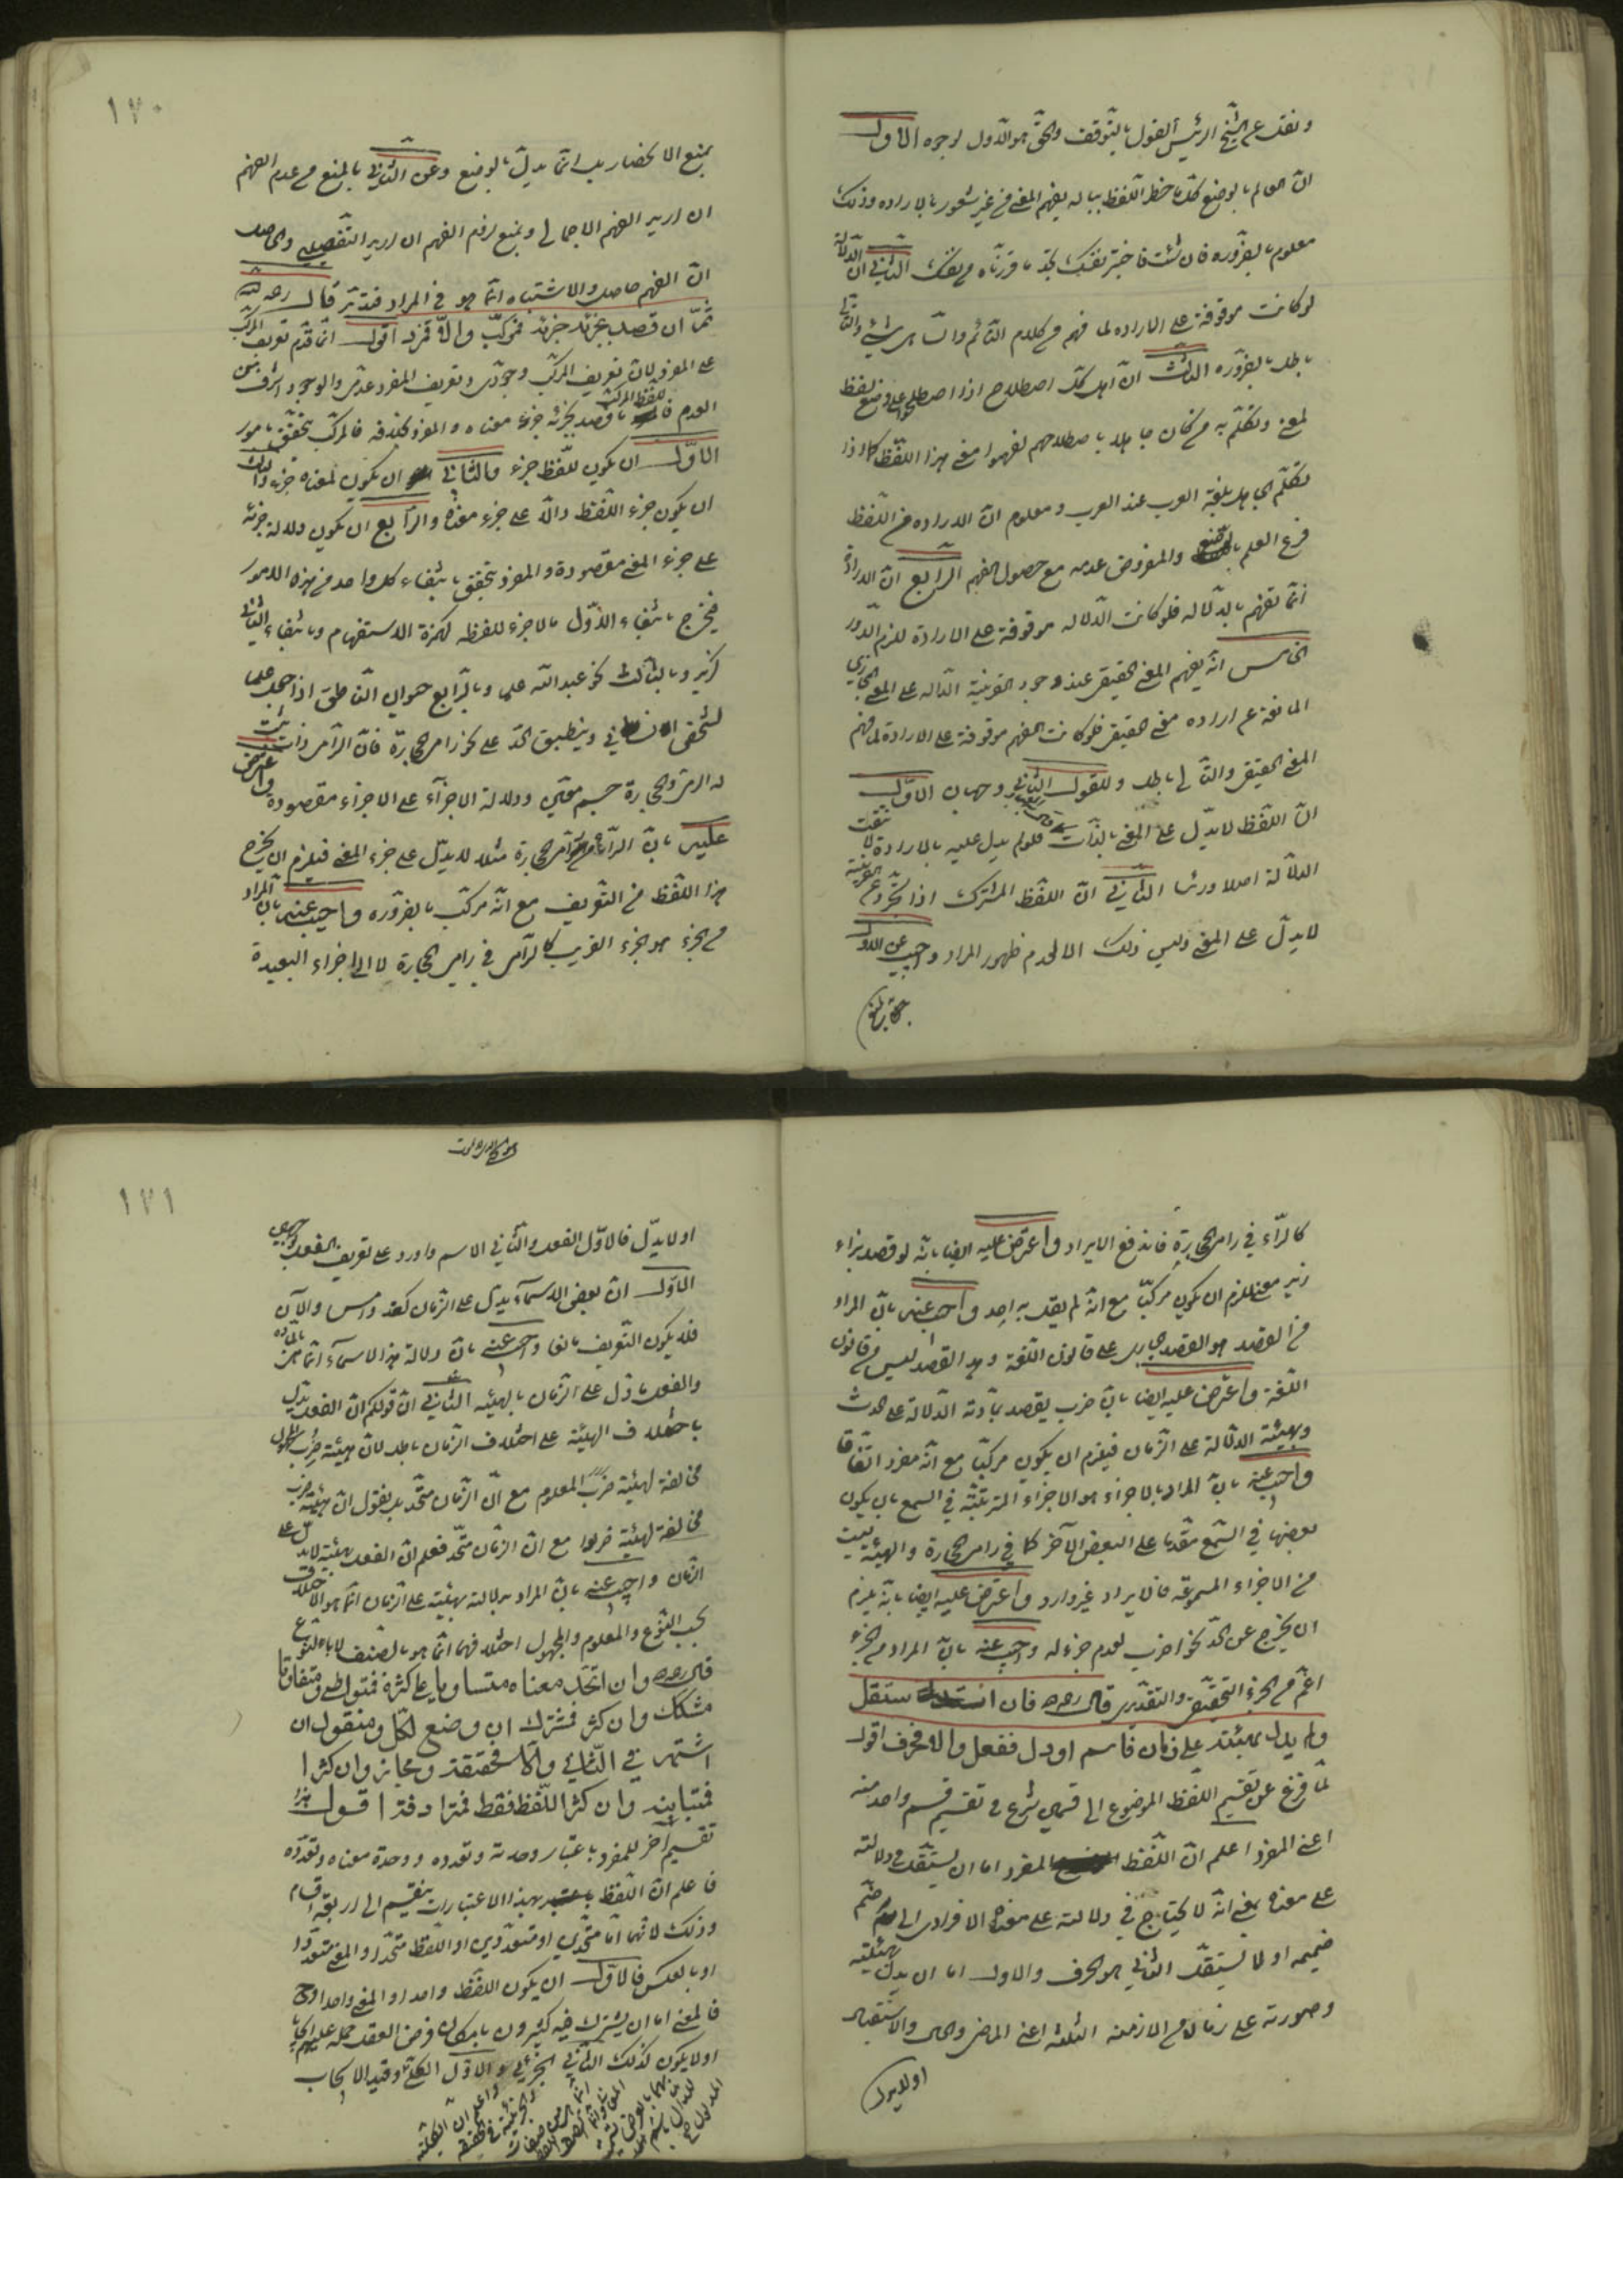 ونقل عن الشيخ الرئيس القول بالتوقف والحق هو الأول لوجوه الاول
ان العالم بالوضع كلما خطر اللفظ بباله يفهم المعنى من غير شعور بالاراده وذلك
معلوم بالضروره فان شئت فاختبر نفسك تجد ما قررناه في نفسك الثاني ان الدلالة
لو كانت موقوفة على الاراده لما فهم من كلام النائم والساهي شيء والتالي
باطل بالضروره الثالث ان اهل كل اصطلاح اذا اصطلحوا على وضع لفظ
لمعنى وتكلم به من كان جاهلا باصطلاحهم لفهموا معنى هذا اللفظ كما اذا
تكلم الجاهل بلغة العرب عند العرب ومعلوم ان الاراده من اللفظ
فرع العلم بالوضع والمفروض عدمه مع حصول الفهم الرابع ان الارادة
انما تفهم بالدلاله فلو كانت الدلاله موقوفة على الارادة للزم الدور
الخامس انه يفهم المعنى الحقيقي عند وجود القرينة الداله على المعنى المجازي
المانعة عن اراده معنى الحقيقي فلو كانت الفهم موقوفة على الارادة لما فهم
المعنى الحقيقي والتالي باطل وللقول الثاني وجهان الاول
ان اللفظ لا يدل على المعنى بالذات فلو لم يدل عليه بالاراده لانتفت
الدلالة اصلا وراسا الثاني ان اللفظ المشترك اذا تجرد عن القرينة
لا يدل على المعنى وليس ذلك الا لعدم ظهور المراد واجيب عن الاول
يمنع الانحصار بل انما يدل بالوضع وعن الثاني بالمنع من عدم الفهم
ان اريد الفهم الاجمالي ونمنع لزوم الفهم ان اريد التفصيلي والحاصل
ان الفهم حاصل والاشتباه انما هو في المراد فتدبر قال رحمه الله
ثم ان قصد بجزئه جزئه فمركب والا فمفرد اقول انما قدم تعريف المركب
على المفرد لان تعريف المركب وجودي وتعريف المفرد عدمي والوجود اشرف من
العدم فاللفظ المركب ما قصد بجزئه جزء معناه والمفرد بخلافه فالمركب يتحقق بامور
الاول ان يكون للفظ جزء والثاني ان يكون لمعناه جزء والثالث
ان يكون جزء اللفظ دالا على جزء معناه والرابع ان يكون دلالة جزئه
على جزء المعنى مقصودة والمفرد يتحقق بانتفاء كل واحد من هذه الامور
فيخرج بانتفاء الاول ما لا جزء للفظه كهمزة الاستفهام وبانتفاء الثاني
كزيد وبالثالث نحو عبدالله علما وبالرابع حيوان الناطق اذا جعل علما
لشخص انساني وينطبق الحد على نحو رامي الحجارة فان الرامي ذات ثبت
له الرمي والحجارة جسم معين ودلالة الاجزاء على الاجزاء مقصودة واعترض
عليه بان الراء من رامي الحجارة مثلا لا يدل على جزء المعنى فيلزم ان يخرج
هذا اللفظ من التعريف مع انه مركب بالضروره واجيب عنه بان المراد
من الجزء هو الجزء القريب كالرامي في رامي الحجارة لا الى اجزاء البعيدة
١٢٠
كالراء في رامي الحجارة فاندفع الايراد واعترض عليه ايضا بانه لو قصد بزاء
زيد معنى للزم ان يكون مركبا مع انه لم يقل به احد واجيب عنه بان المراد
من القصد هو القصد الجاري على قانون اللغة وهذا القصد ليس من قانون
اللغة واعترض عليه ايضا بان ضرب يقصد بمادته الدلالة على الحدث
وبهيئته الدلالة على الزمان فيلزم ان يكون مركبا مع انه مفرد اتفاقا
واجيب عنه بان المراد بالاجزاء هو الاجزاء المترتبة في السمع بان يكون
بعضها في السمع مقدما على البعض الآخر كما في رامي الحجارة والهيئة ليست
من الاجزاء المسموعه فالايراد غير وارد واعترض عليه ايضا بانه يلزم
ان يخرج عن الحد نحو اضرب لعدم جزء له واجيب عنه بان المراد من الجزء
اعم من الجزء التحقيقي والتقديري قال ره فان استقل
ولم يدل بهيئته على زمان فاسم او دل ففعل والا فحرف اقول
لما فرغ عن تقسيم اللفظ الموضوع الى قسمين شرع في تقسيم قسم واحد منه
اعنى المفرد اعلم ان اللفظ المفرد اما ان يستقل في دلالته
على معناه بمعنى انه لا يحتاج في دلالته على معناه الافرادي الى ضم
ضميمه او لا يستقل الثاني هو الحرف والاول اما ان يدل بهيئته
وصورته على زمان من الازمنه الثلثه اعنى الماضي والحال والاستقبال
او لا يدل
١٢١
او لا يدل فالاول الفعل والثاني الاسم واورد على تعريف الفعل بوجهين
الاول ان بعض الاسماء يدل على الزمان كغد وامس والآن
فلا يكون التعريف مانعا واجيب عنه بان دلالة هذه الاسماء انما هي بالماده
والفعل ما دل على الزمان بالهيئه الثاني ان قولكم ان الفعل يدل
باختلاف الهيئة على اختلاف الزمان باطل لان هيئة ضرب المجهول
مخالفة لهيئة ضرب المعلوم مع ان الزمان متحد بل نقول ان هيئة ضرب
مخالفة لهيئة ضربوا مع ان الزمان متحد فعلم ان الفعل بهيئته لا يدل على
الزمان واجيب عنه بان المراد بدلالته بهيئته على الزمان انما هو الاختلاف
بحسب النوع والمعلوم والمجهول اختلافهما انما هو بالصنف لا بالنوع
قال ره وان اتحد معناه متساويا على كثرة فمتواطي ومتفاوتا
مشكك وان كثر فمشترك ان وضع لكل ومنقول ان
اشتهر في الثاني والا فحقيقة ومجاز وان كثرا
فمتباينه وان كثر اللفظ فقط فمترادفه اقول هذا
تقسيم آخر للمفرد باعتبار وحدته وتعدده ووحدة معناه وتعدده
فاعلم ان اللفظ بهذا الاعتبارات ينقسم الى اربعة اقسام
وذلك لانهما اما متحدين او متعددين او اللفظ متحدا والمعنى متعددا
او بالعكس فالاول ان يكون اللفظ واحدا والمعنى واحدا وح
فالمعنى اما ان يشترك فيه كثيرون بامكان فرض العقل حمله عليهم ايجابا
او لا يكون كذلك الثاني الجزئي والاول الكلي وقيد الايجاب
واعلم ان الكلية
والجزئية في الحقيقه